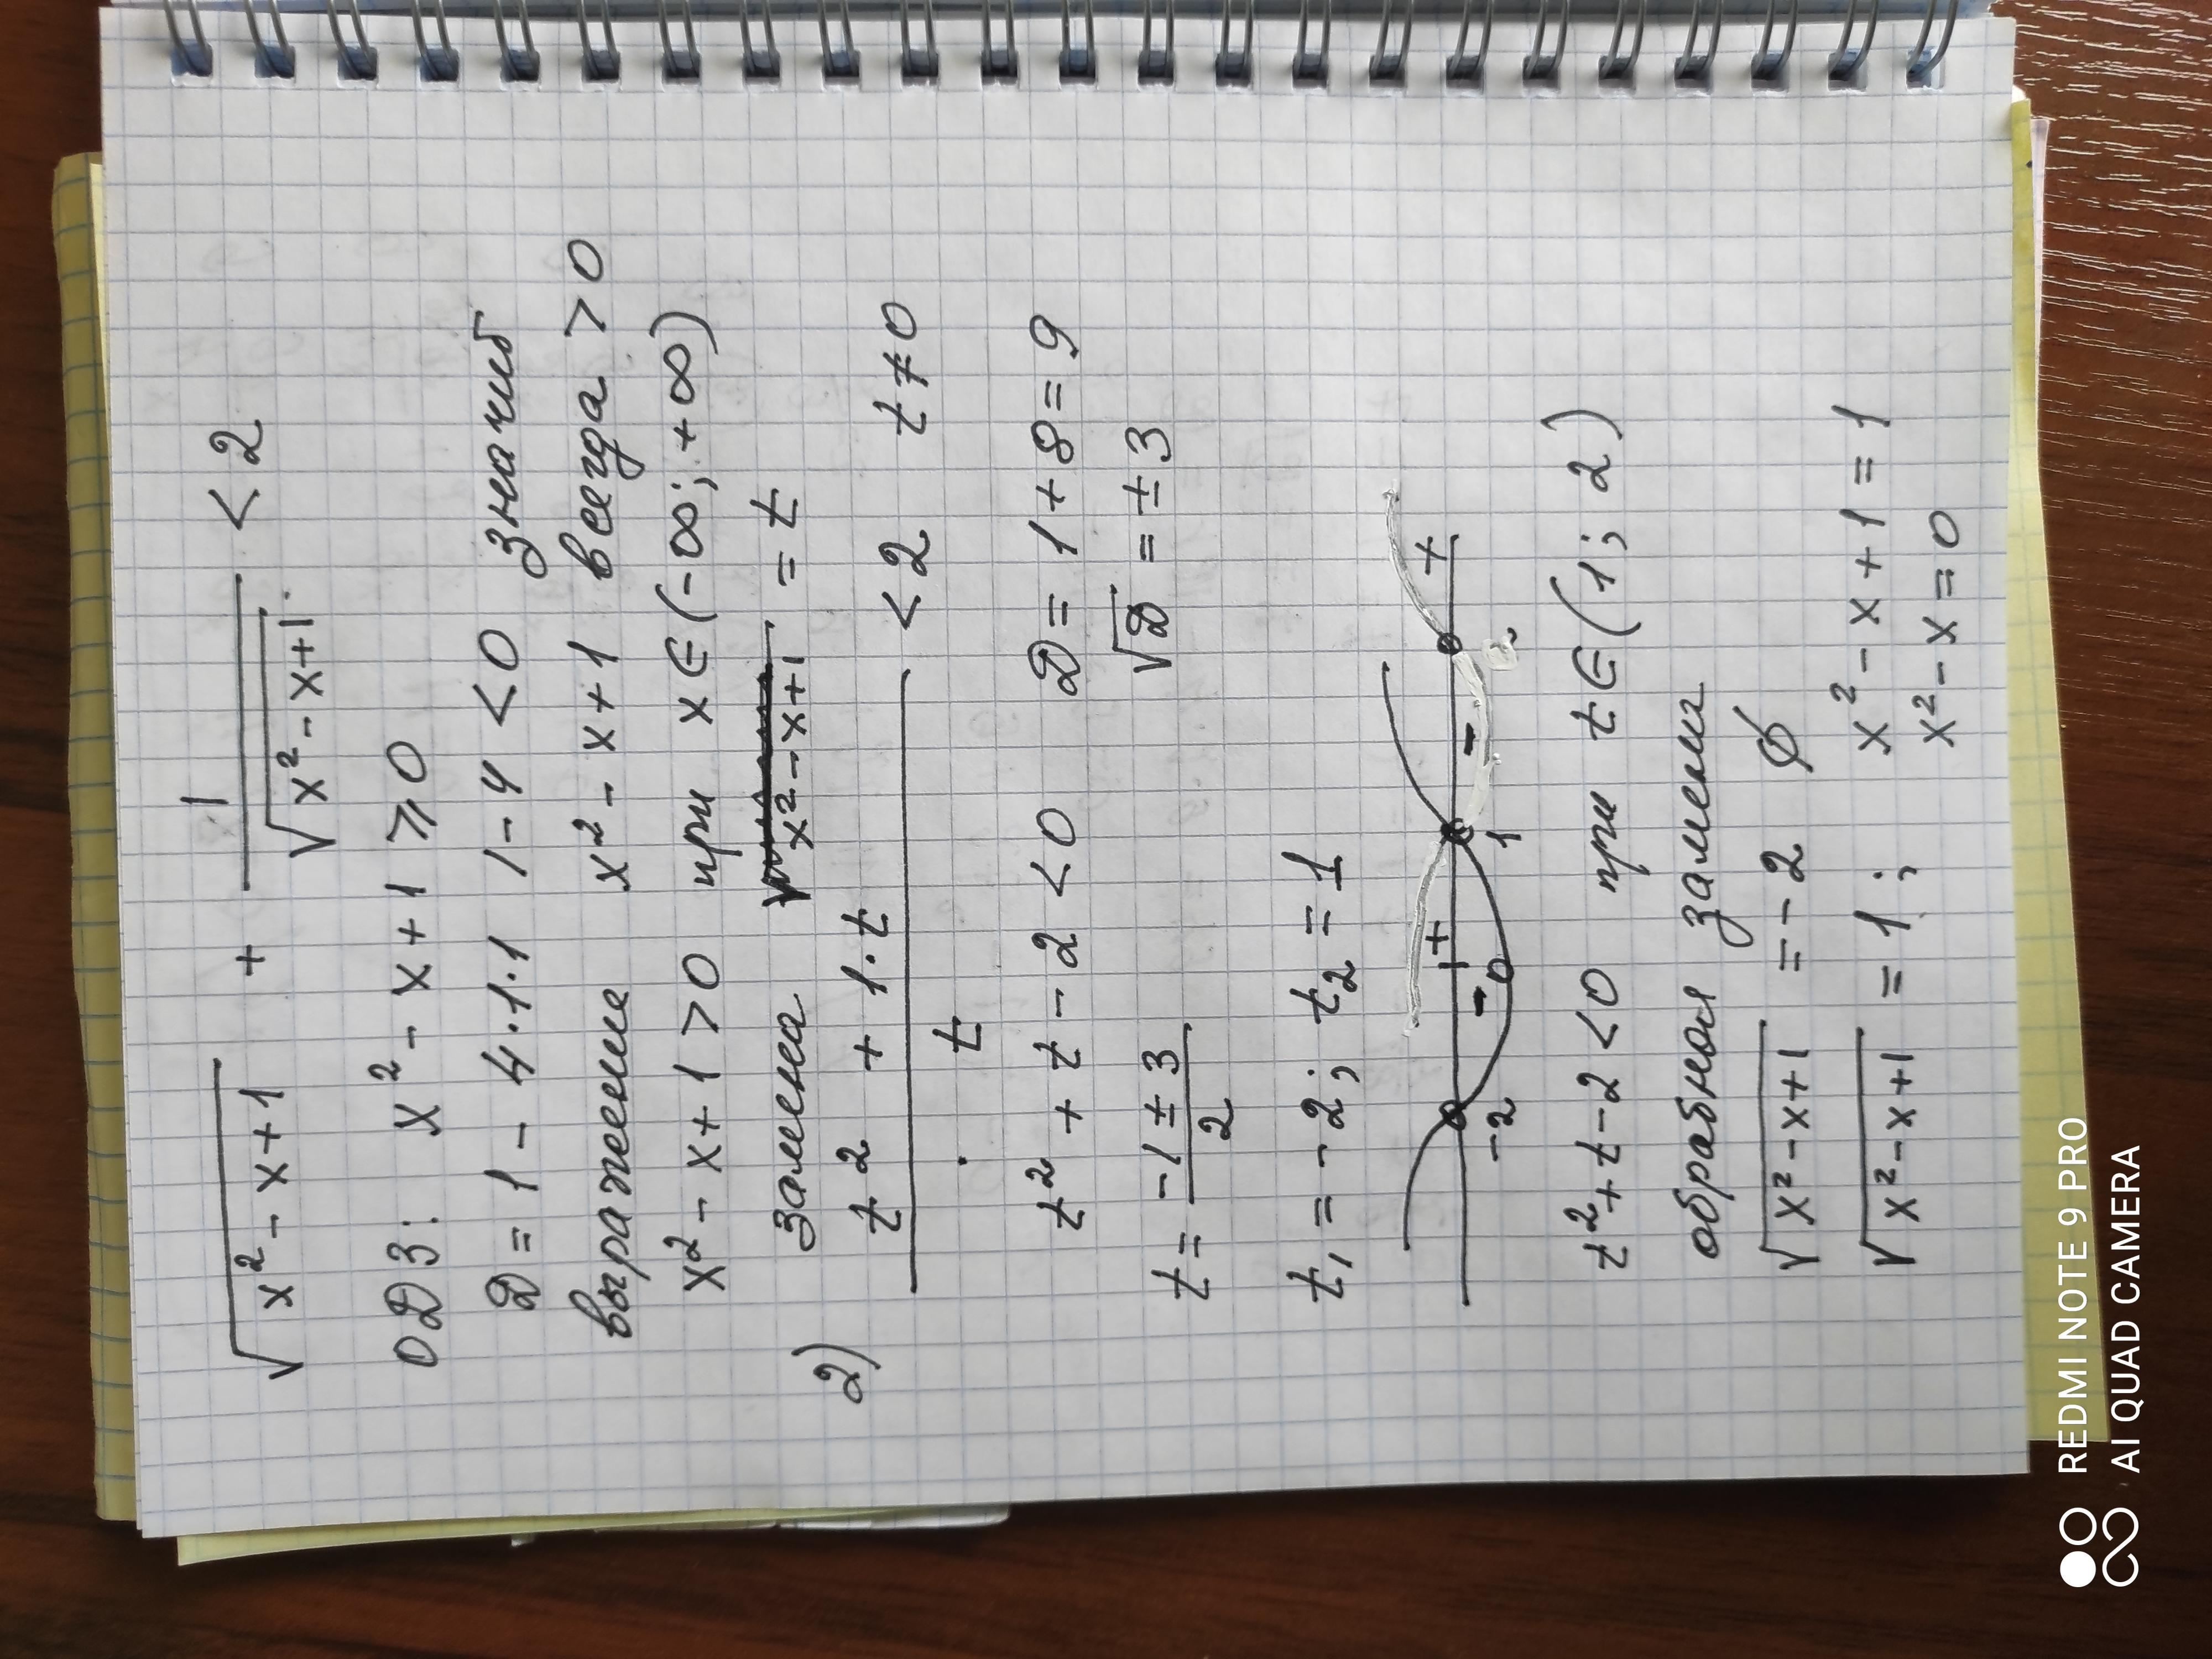 √x²-x+1 + 1/√x²-x+1 < 2
ОДЗ: x² - x + 1 ⩾ 0
D = 1 - 4·1·1 1-4 < 0 значит
выражение x² - x + 1 всегда > 0
x² - x + 1 > 0 при x ∈ (-∞; +∞)
замена x² - x + 1 = t
2) t² + 1·t / t < 2 t ≠ 0
t² + t - 2 < 0 D = 1 + 8 = 9
t = -1 ± 3 / 2 √D = ± 3
t₁ = -2; t₂ = 1
+ - +
-2 - 0 1
t² + t - 2 < 0 при t ∈ (1; 2)
обратная замена
√x²-x+1 = -2 ∅
√x²-x+1 = 1; x² - x + 1 = 1
x² - x = 0
REDMI NOTE 9 PRO
AI QUAD CAMERA